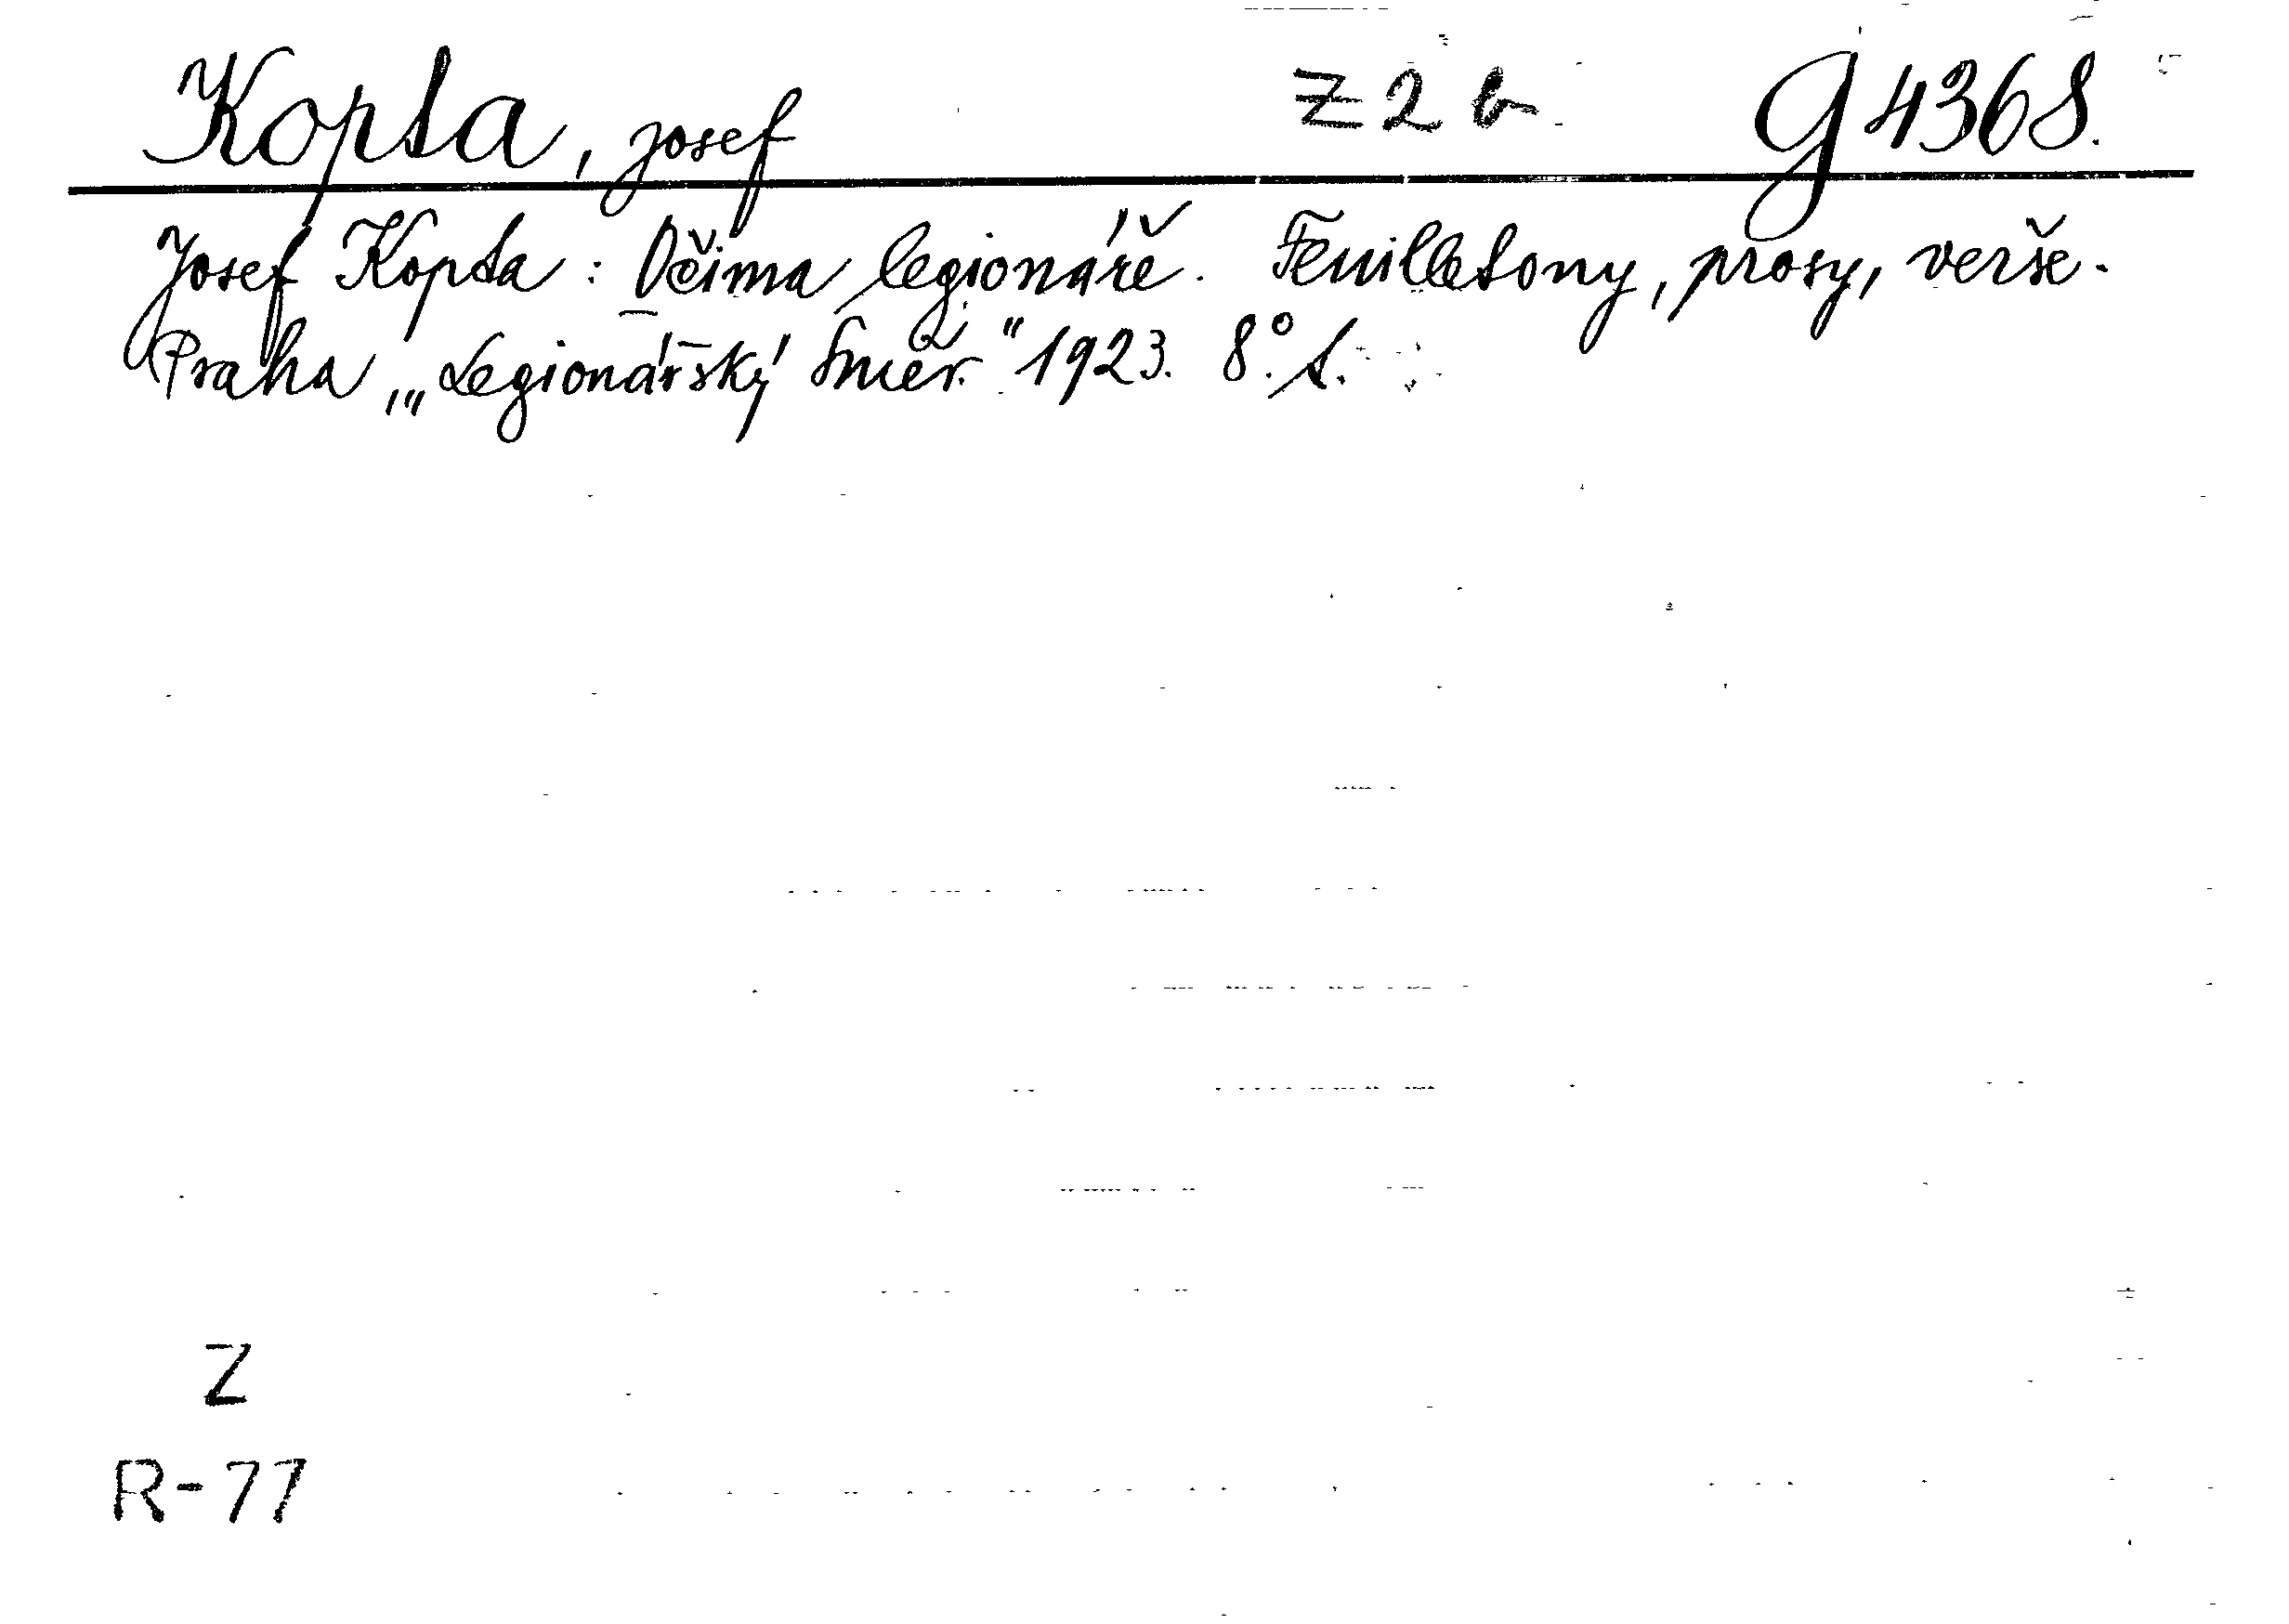 Kopta, Josef Z 2 b G 4368.
Josef Kopta : Očima legionáře. Feuilletony, prosy, verše.
Praha, „Legionářský Směr.“ 1923. 8°. S.
Z
R-77